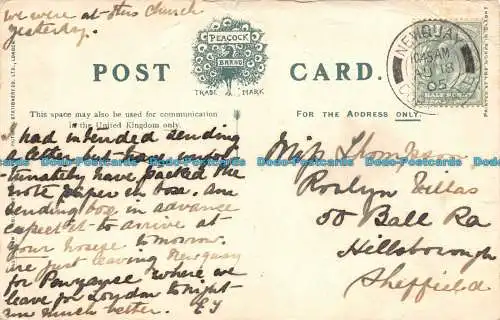 We were at this Church
yesterday.
PEACOCK
BRAND
TRADE MARK
POST CARD.
NEWQUAY
10.45AM
AU 13
This space may also be used for communication
in the United Kingdom only.
FOR THE ADDRESS ONLY.
I had intended sending
a letter, but have unfor-
tunately have packed the
note paper in box. am
sending box in advance
expect it to arrive at
your house tomorrow.
are just leaving Newquay
for Penzance where we
leave for London to-night
am much better.
Miss Thompson
Roslyn Villas
50 Ball Rd
Hillsborough
Sheffield
Dodo-Postcards Dodo-Postcards Dodo-Postcards Dodo-Postcards Dodo-Postcards